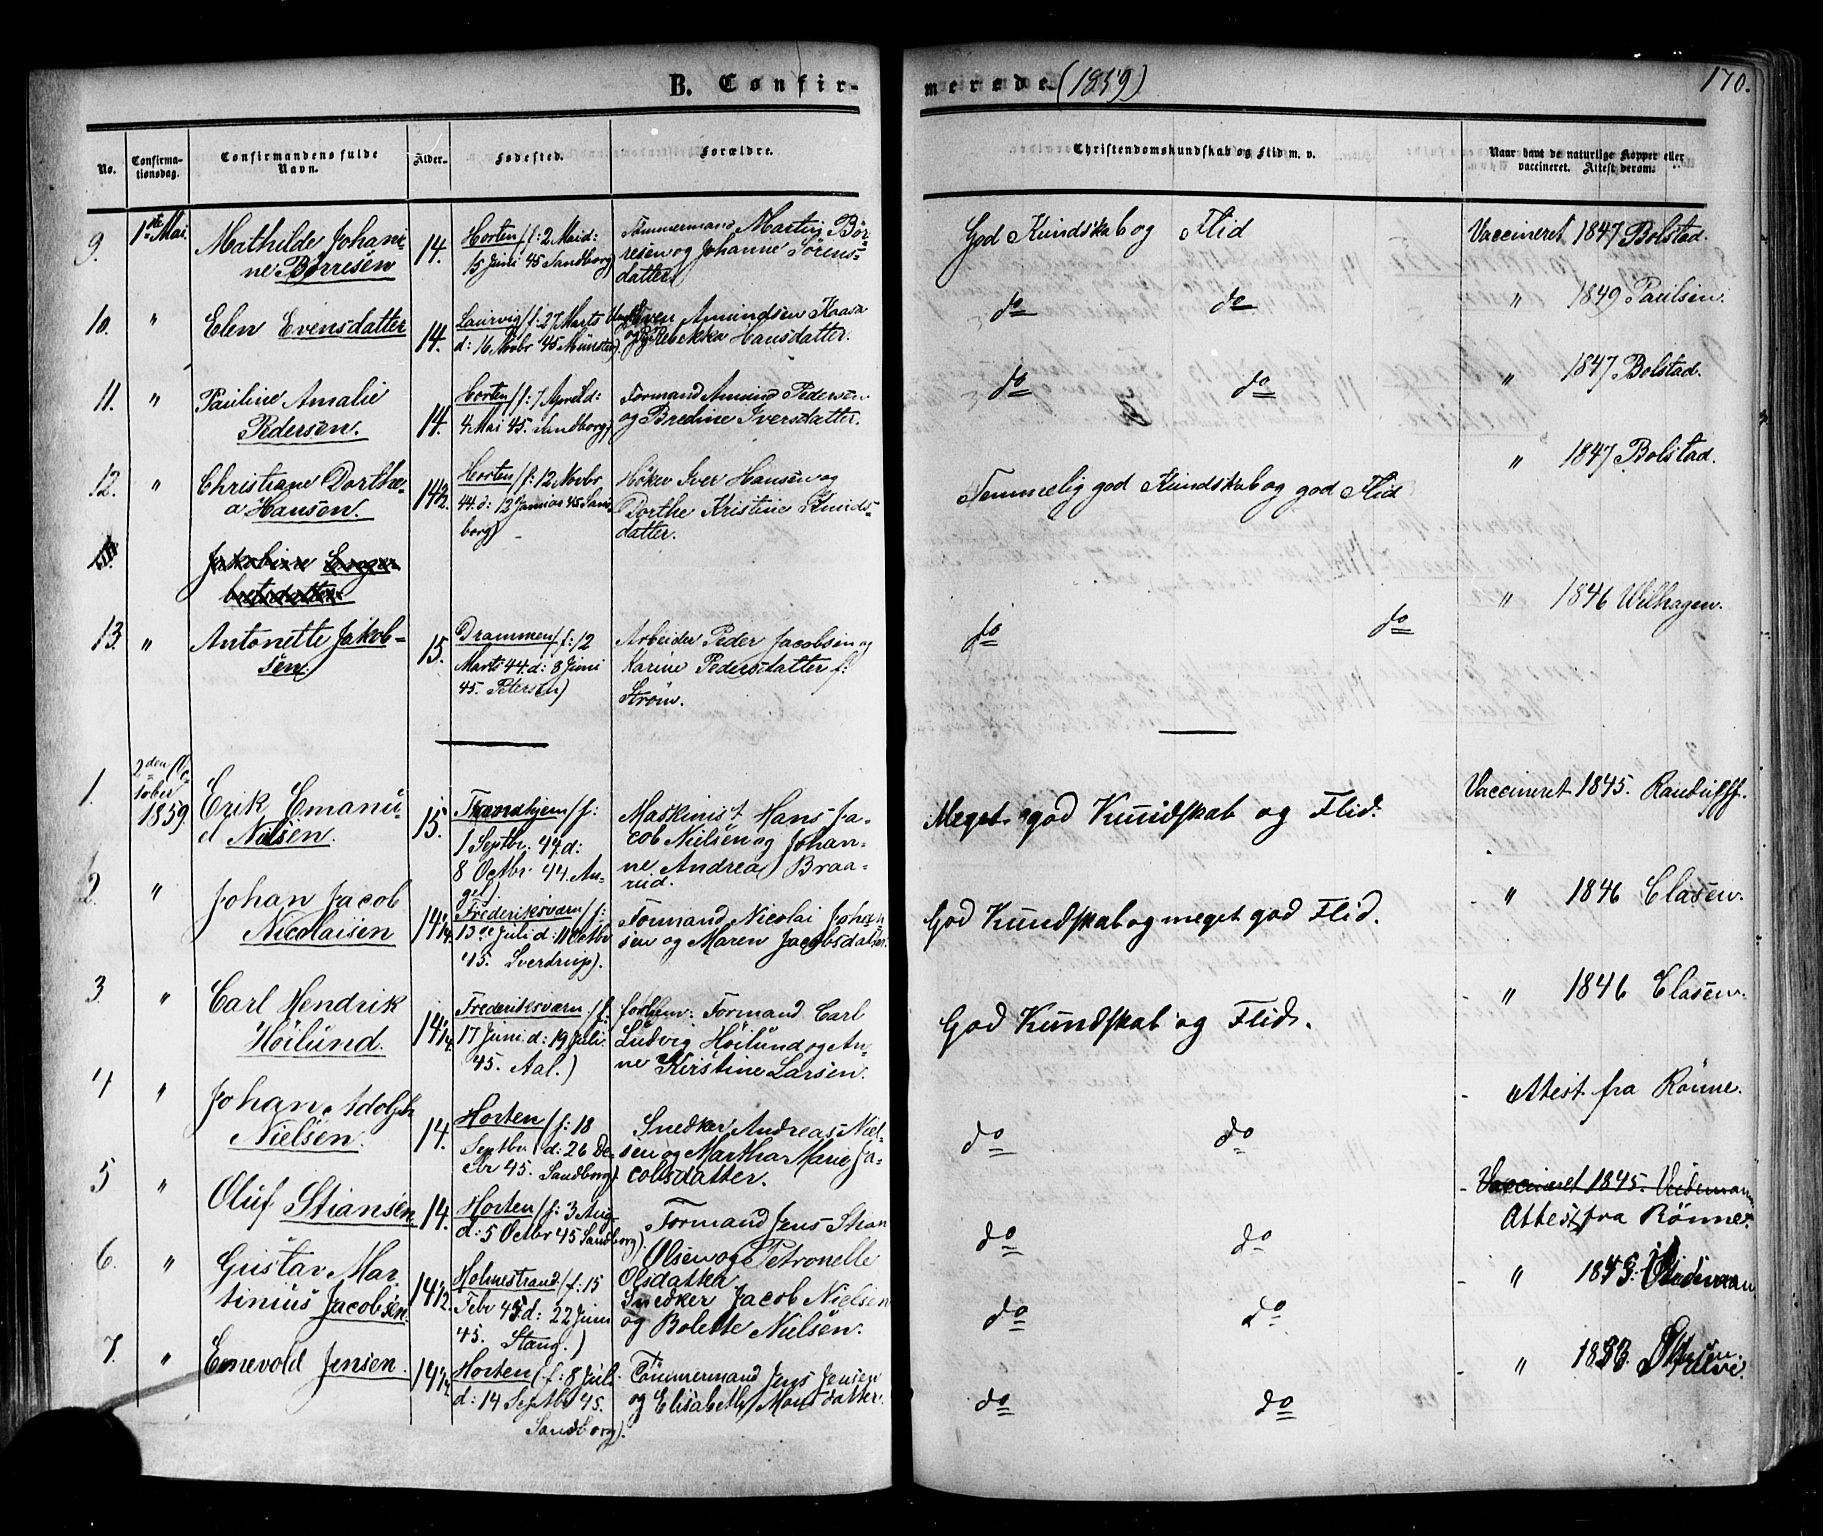 B. Confir-
merede (1859)
170.
No.
Confirma-
tionsdag.
Confirmandens fulde
Navn.
Alder.
Fødested.
Forældre.
Christendomskundskab og Flid m. v.
Naar havt de naturlige Kopper eller
vaccineret. Attest derom.
9.
1ste Mai.
Mathilde Johani-
ne Børresen
14.
Horten (f: 2 Mai d:
15 Juni 45 Sandborg)
Tømmermand Martin Bør-
resen og Johanne Sörens-
datter
God Kundskab og Flid
Vaccineret 1847 Bolstad.
10.
"
Elen Evensdatter
14.
Laurvig (f: 27 Marts
d: 16 Novbr 45 Münster).
Even Amundsen Kaasa
og Rebekka Hansdatter.
do do
" 1849 Paulsen.
11.
"
Pauline Amalie
Pedersen.
14.
Horten (f: 7 April d:
4 Mai 45. Sandborg)
Formand Amund Pedersen
og Bredine Iversdatter.
do do
" 1847 Bolstad.
12.
"
Christiane Dorthe-
a Hansen.
14 1/2.
Horten (f: 12 Novbr
44. d: 12 Januar 45 Sand-
borg)
Høker Iver Hansen og
Dorthe Kristine Knuds-
datter.
Temmelig god Kundskab og god Flid
" 1847 Bolstad.
Jakobine Enger-
bretsdatter
13.
"
Antonette Jakob-
sen.
15.
Drammen (f: 12
Marts 44. d: 8 Juni
45. Petersen)
Arbeider Peder Jacobsen og
Karine Pedersdatter f:
Strøm.
do do
" 1846 Wilhagen.
1.
2den Oc-
tober
1859
Erik Emanu-
el Nilsen.
15.
Trondhjem (f:
1 Septbr. 44. d:
8 Octbr. 44. An-
gel)
Maskinist Hans Ja-
cob Nielsen og Johan-
ne Andrea Braa-
rud.
Meget god Kundskab og Flid.
Vaccineret 1845. Randulff.
2.
"
Johan Jacob
Nicolaisen
14 1/4.
Frederiksværn (f:
13de Juli d: 11 Octbr
45. Sverdrup).
Formand Nicolai Johan-
sen og Maren Jacobsdatter.
God Kundskab og meget god Flid.
- " 1846 Clasen.
3.
"
Carl Hendrik
Höilund.
14 1/4.
Frederiksværn (f:
17 Juni d: 19 Juli
45. Aal.)
Formand Carl
Ludvig Höilund og An-
ne Kirstine Larsen.
God Kundskab og Flid.
- " 1846 Clasen.
4
"
Johan Adolph
Nielsen.
14.
Horten (f: 18
Septbr d: 26 De-
cbr 45. Sandborg).
Snedker Andreas Niel-
sen og Martha Marie Ja-
cobsdatter.
do do
- Attest fra Rønne.
5
"
Oluf Stiansen
14.
Horten (f: 3 Aug
d: 5 Octbr 45 Sandborg).
Formand Jens Stian
Olsen og Petronelle
Olsdatter
do do
- Vaccineret 1845.
Attest fra Rønne.
6.
"
Gustav Mar-
tinius Jacobsen.
14 1/2.
Holmestrand (f: 15
Febr 45 d: 22 Juni
45. Stang.)
Snedker Jacob Nielsen
og Bolette Nielsen.
do do
- "
7.
"
Enevold Jensen.
14 1/4
Horten (f: 8 Juli
d: 14 Septbr 45.
Sandborg).
Tömmermand Jens Jensen
og Elisabeth Monsdatter.
do do
- "